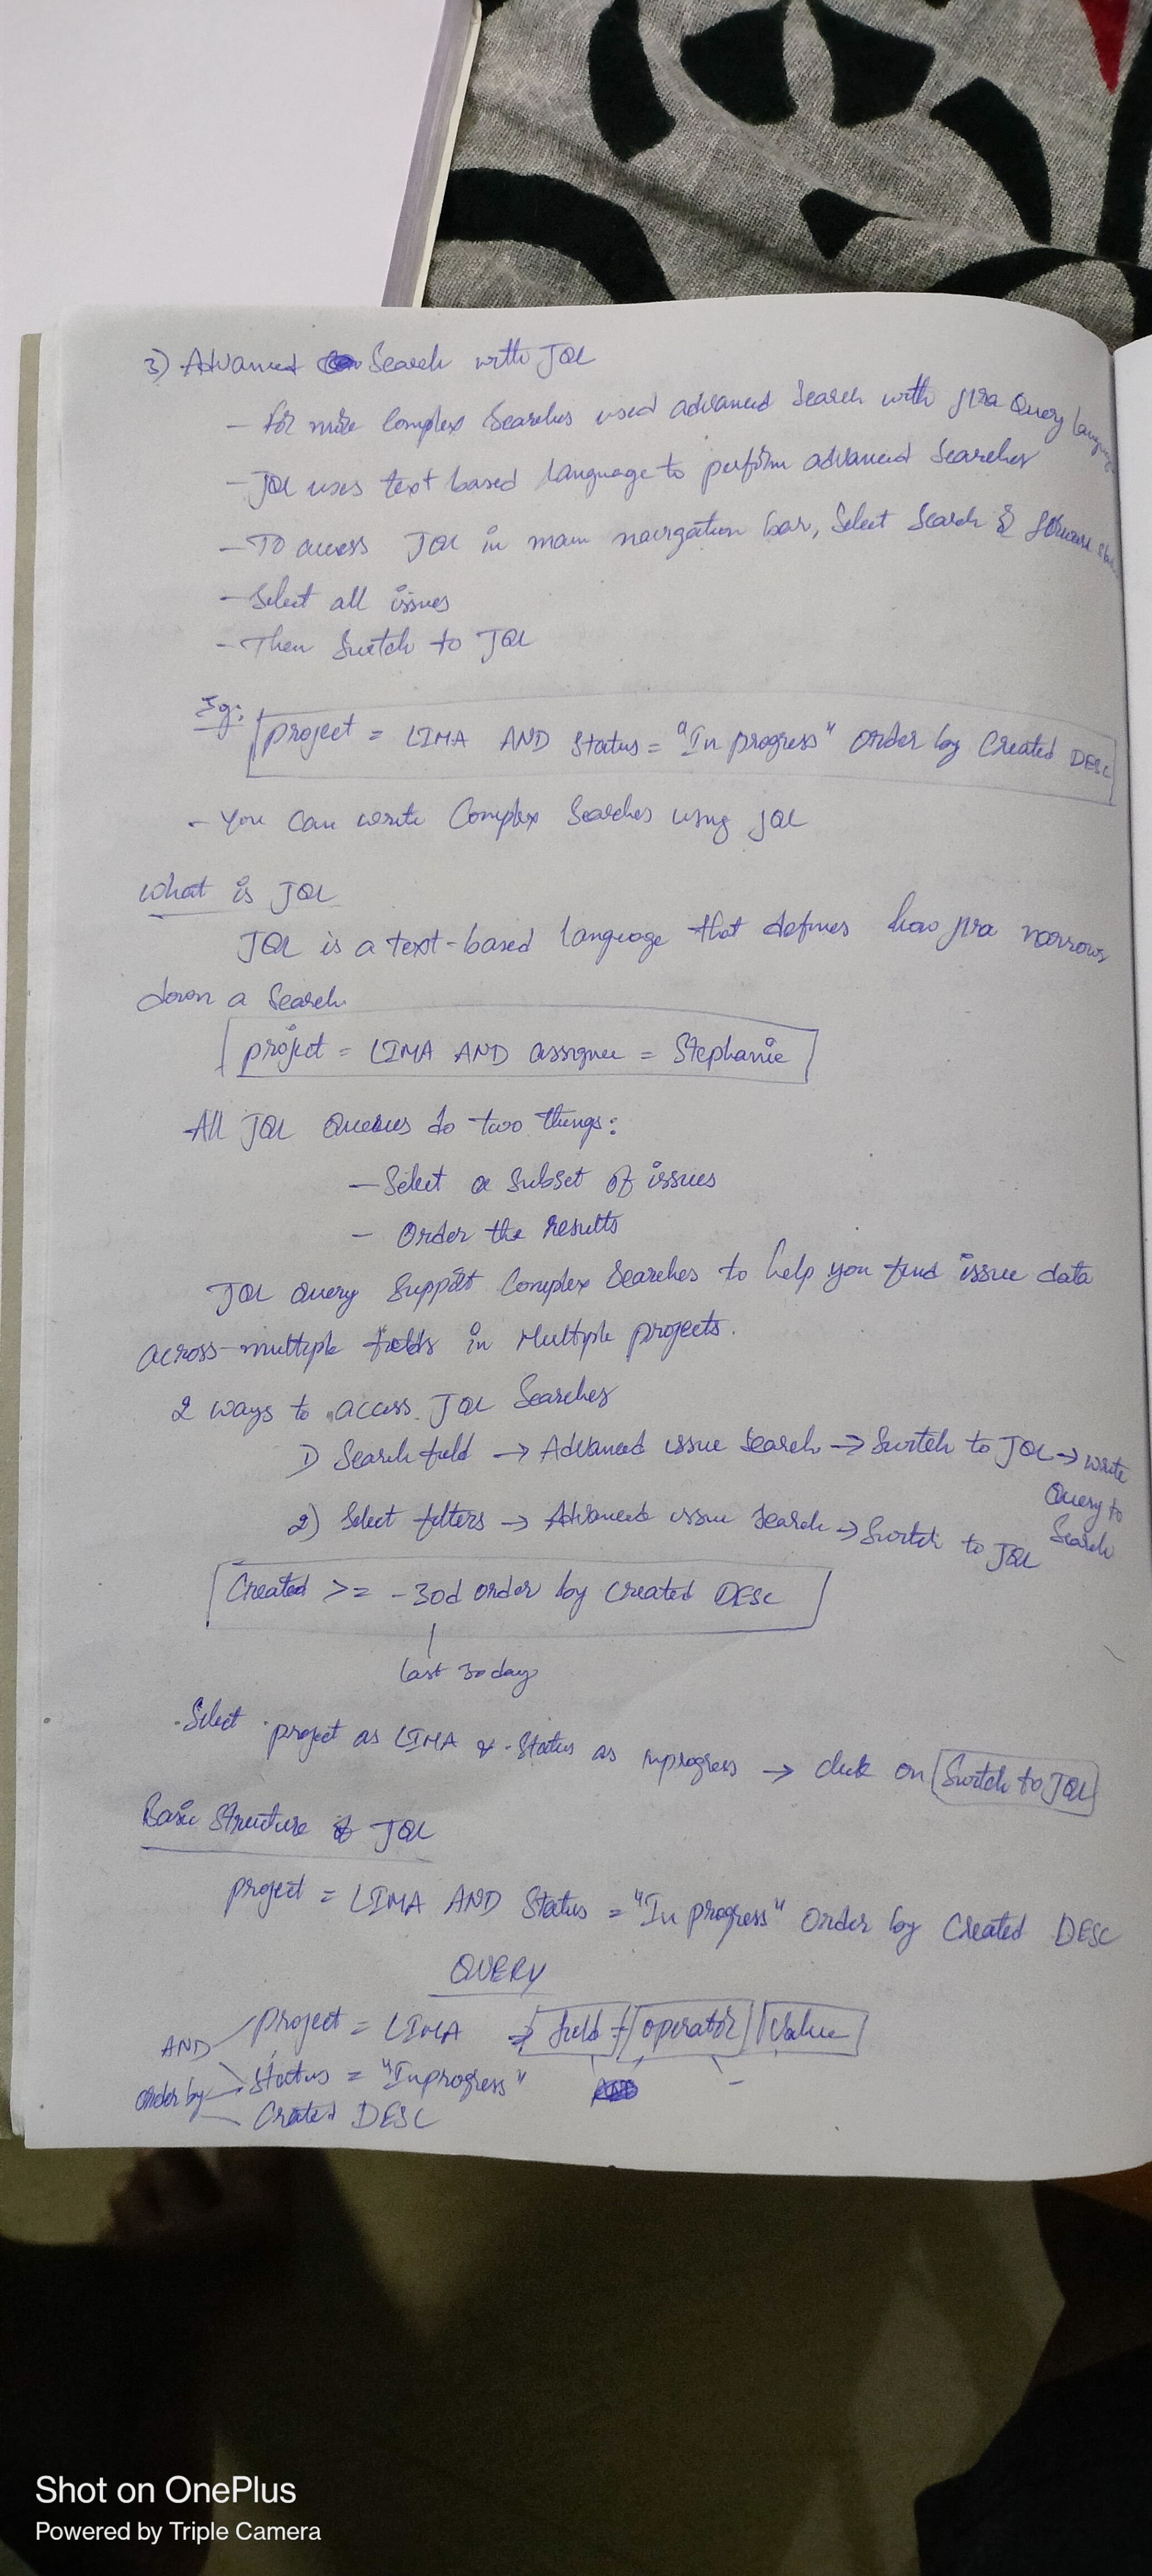 3) Advanced Search with JQL
- for more complex searches used advanced search with jira Query
- JQL uses text based language to perform advanced searches
- To access JQL in main navigation bar, select search &
- Select all issues
- Then switch to JQL
Eg:
project = LIMA AND status = "In progress" order by created DESC
- You can write complex searches using JQL
What is JQL
JQL is a text-based language that defines how jira narrows
down a search.
project = LIMA AND assignee = Stephanie
All JQL Queries do two things:
- Select a subset of issues
- Order the results
JQL query support complex searches to help you find issue data
across multiple fields in Multiple projects.
2 ways to access JQL Searches
1) Search field → Advanced issue search → Switch to JQL → write
Query to
Search
2) Select filters → Advanced issue search → Switch to JQL
Created >= -30d order by created DESC
last 30 days
Select project as LIMA & status as inprogress → click on Switch to JQL
Basic Structure of JQL
project = LIMA AND Status = "In progress" Order by Created DESC
QUERY
project = LIMA ⇒ field + operator Value
AND
status = "Inprogress"
order by
Created DESC
Shot on OnePlus
Powered by Triple Camera